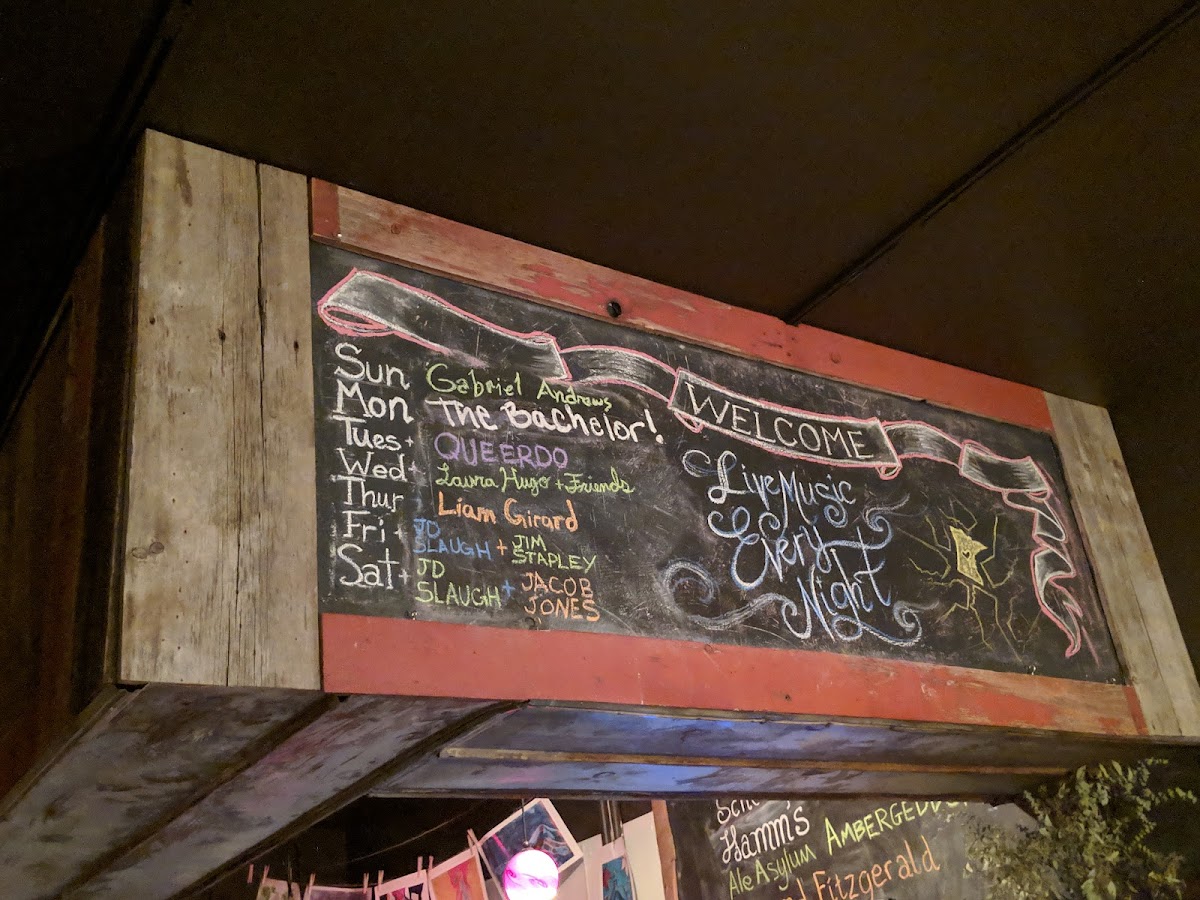 WELCOME
Sun Gabriel Andrews
Mon The Bachelor!
Tues + QUEERDO
Wed + Laura Hugo + Friends
Thur Liam Girard
Fri + JD SLAUGH + JIM STAPLEY
Sat + JD SLAUGH + JACOB JONES
Live Music
Every
Night
Hamm's
Ale Asylum AMBERGEDDON
Fitzgerald